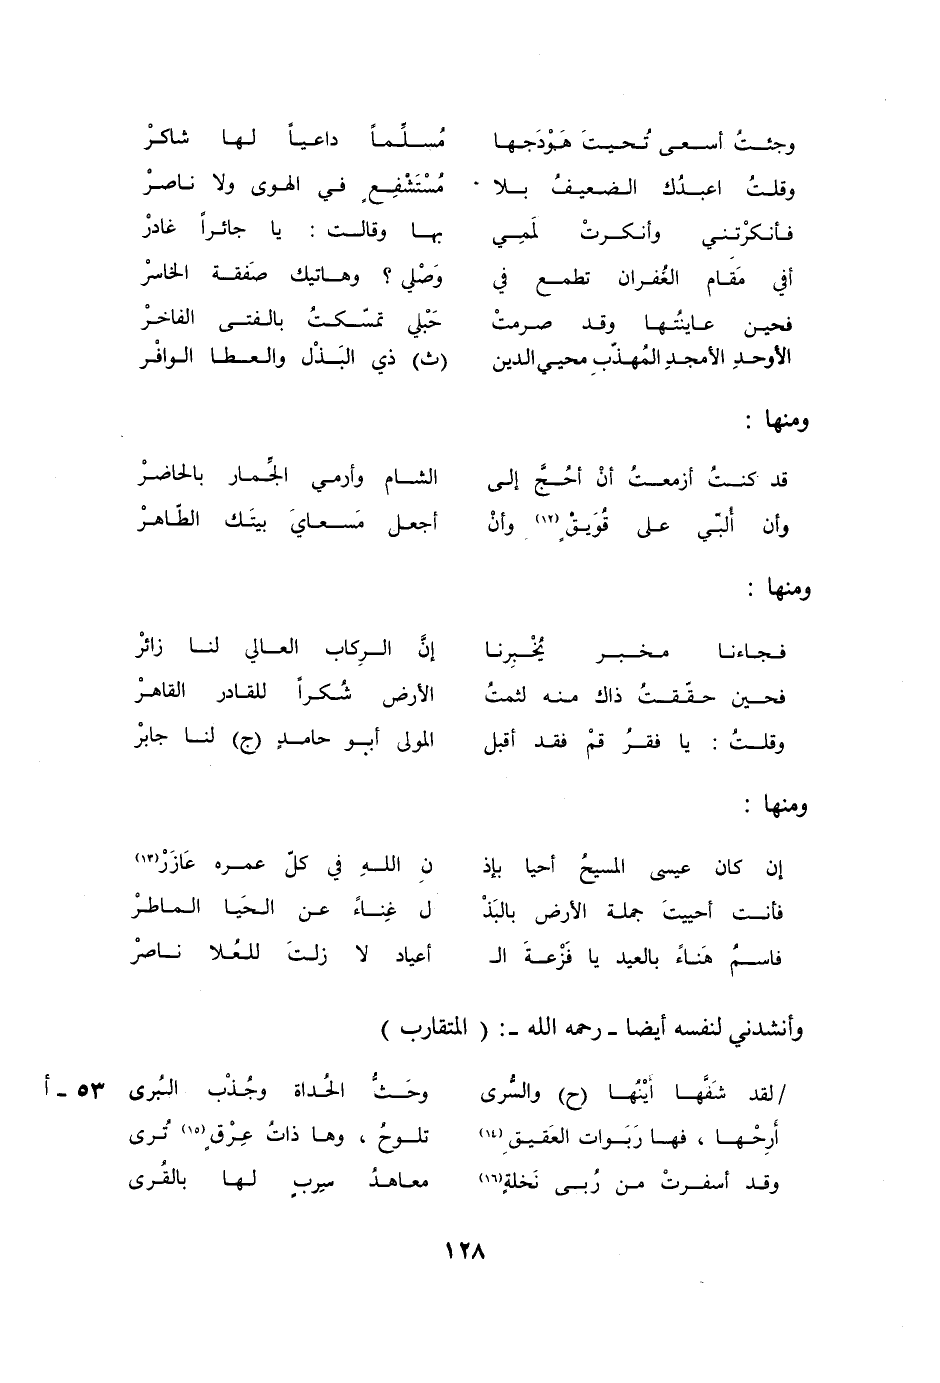 وجئتُ أسعى تُحيتَ هَوْدَجِها مُسلّماً داعياً لها شاكرْ
وقلتُ اعبدُك الضعيفُ بلا مُتْشفِعٍ في الهوى ولا ناصرْ
فأنكرْتني وأنكرتْ لَمي بها وقالت : يا جائراً غادرْ
أفي مَقام الغُفران تطمع في وَصْلي ؟ وهاتيك صَفقة الخاسرْ
فحين عاينتُها وقد صرمتْ حَبْلي تمسّكتُ بالفتى الفاخرْ
الأوحدِ الأمجدِ المُهذّبِ محيي الدين (ث) ذي البَذْل والعطا الوافرْ
ومنها :
قد كنتُ أزمعتُ أنْ أحُجَّ إلى الشام وأرمي الجِّمار بالحاضرْ
وأن ألبّي على قُوَيقٍ(١٢) وأنْ أجعل مَسعايَ بيتَك الطّاهرْ
ومنها :
فجاءنا مخبر يُخْبِرنا إنَّ الركاب العالي لنا زائرْ
فحين حقّقتُ ذاك منه لثمتُ الأرض شُكراً للقادر القاهرْ
وقلتُ : يا فقرُ قمْ فقد أقبل المولى أبو حامدٍ (ج) لنا جابرْ
ومنها :
إن كان عيسى المسيحُ أحيا بإذ ن اللهِ في كلّ عمره عَازَرْ(١٣)
فأنت أحييتَ جملة الأرض بالبَذْ ل غِناءً عن الحَيَا الماطرْ
فاسلمْ هَناءً بالعيد يا فَزْعَةَ الـ أعياد لا زلتَ للعُلا ناصرْ
وأنشدني لنفسه أيضا ـ رحمه الله ـ : ( المتقارب )
/ لقد شفَّها أيْنُها (ح) والسُّرى وحَثُّ الحُداة وجُذْب البُرى ٥٣ ـ أ
أرحْها ، فها رَبَوات العقيق(١٤) تلوحُ ، وها ذاتُ عِرْقٍ(١٥) تُرى
وقد أسفرتْ من رُبى نَخلةٍ(١٦) معاهدُ سِربٍ لها بالقُرى
١٢٨